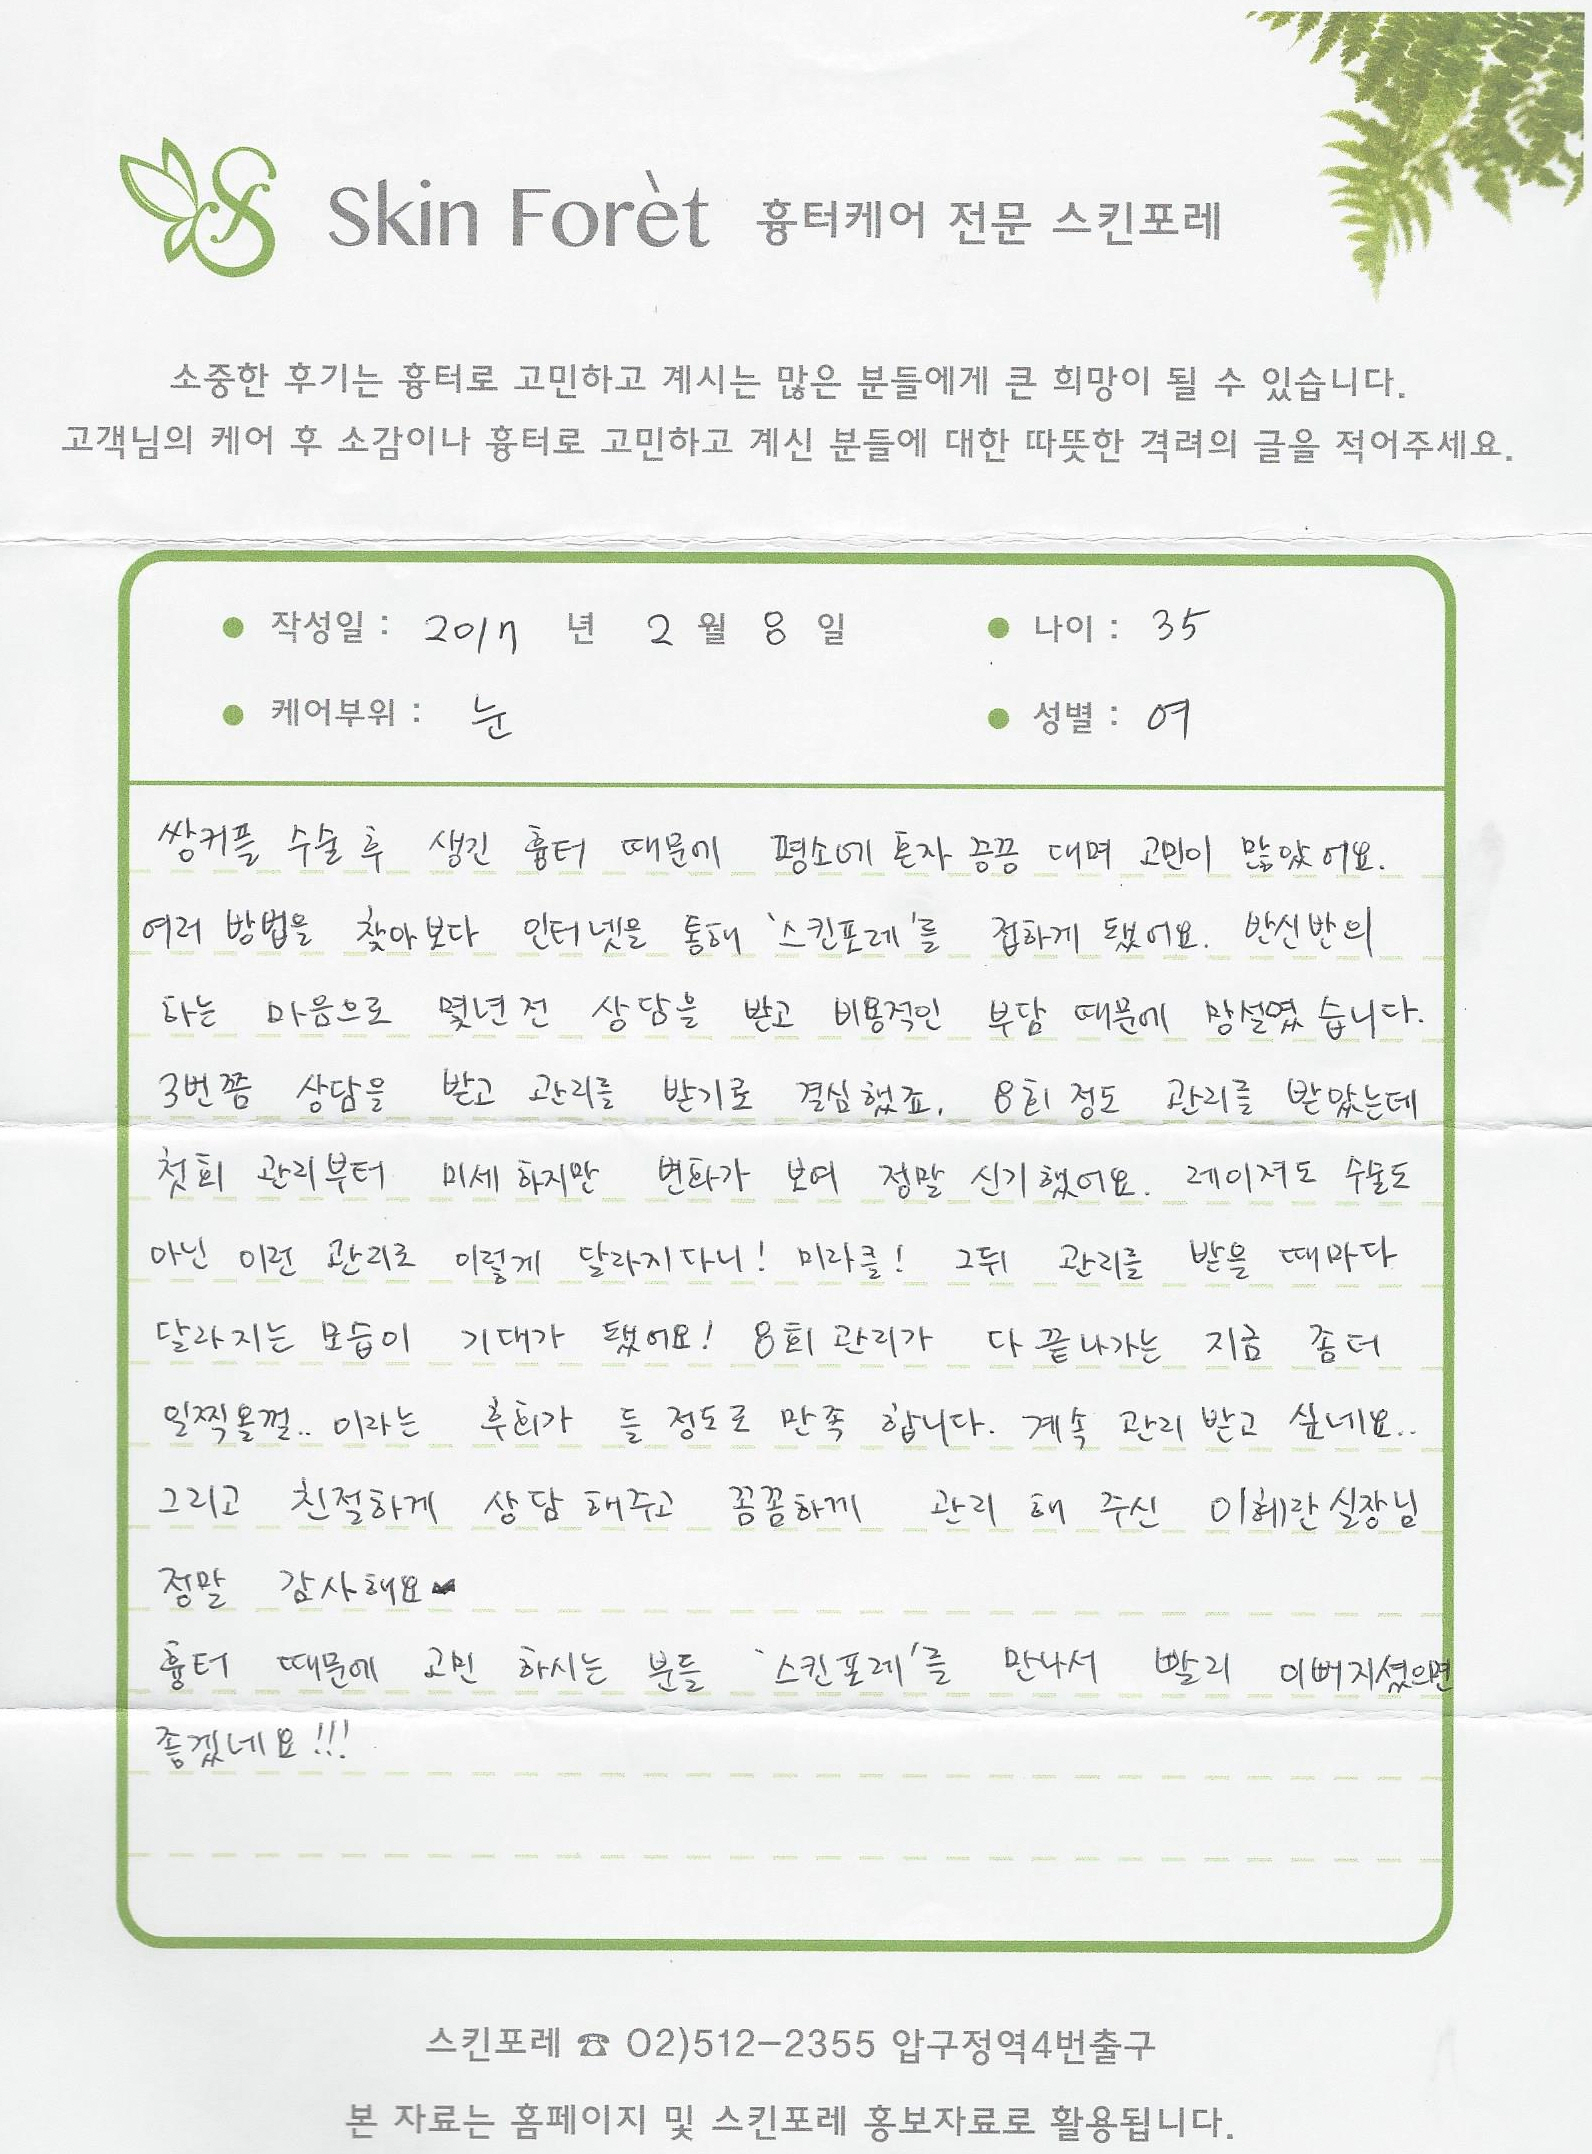 Skin Forèt 흉터케어 전문 스킨포레
소중한 후기는 흉터로 고민하고 계시는 많은 분들에게 큰 희망이 될 수 있습니다.
고객님의 케어 후 소감이나 흉터로 고민하고 계신 분들에 대한 따뜻한 격려의 글을 적어주세요.
● 작성일 : 2017 년 2 월 8 일 ● 나이 : 35
● 케어부위 : 눈 ● 성별 : 여
쌍커플 수술 후 생긴 흉터 때문에 평소에 혼자 끙끙 대며 고민이 많았어요.
여러 방법을 찾아보다 인터넷을 통해 '스킨포레'를 접하게 됐어요. 반신반의
하는 마음으로 몇년전 상담을 받고 비용적인 부담 때문에 망설였습니다.
3번쯤 상담을 받고 관리를 받기로 결심했죠. 8회 정도 관리를 받았는데
첫회 관리부터 미세하지만 변화가 보여 정말 신기했어요. 레이저도 수술도
아닌 이런 관리로 이렇게 달라지다니! 미라클! 그뒤 관리를 받을 때마다
달라지는 모습이 기대가 됐어요! 8회 관리가 다 끝나가는 지금 좀더
일찍올껄.. 이라는 후회가 들 정도로 만족 합니다. 계속 관리 받고 싶네요..
그리고 친절하게 상담해주고 꼼꼼하게 관리 해 주신 이혜란실장님
정말 감사해요♥
흉터 때문에 고민 하시는 분들 '스킨포레'를 만나서 빨리 이뻐지셨으면
좋겠네요!!!
스킨포레 ☎ 02)512-2355 압구정역4번출구
본 자료는 홈페이지 및 스킨포레 홍보자료로 활용됩니다.